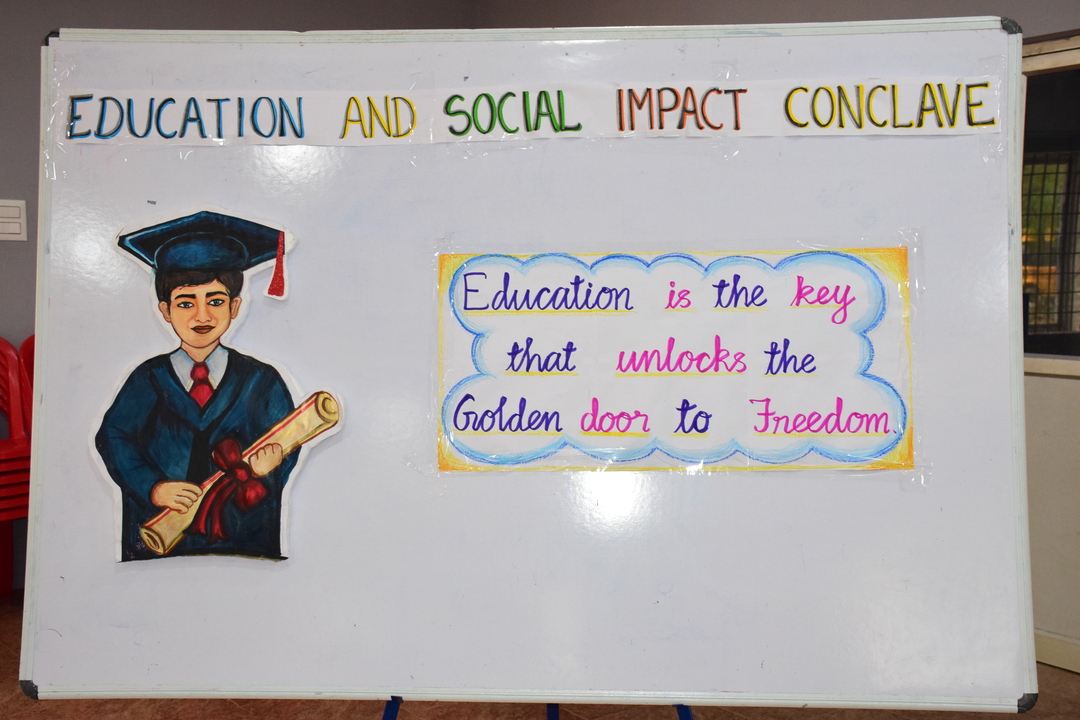 EDUCATION AND SOCIAL IMPACT CONCLAVE
Education is the key
that unlocks the
Golden door to Freedom.